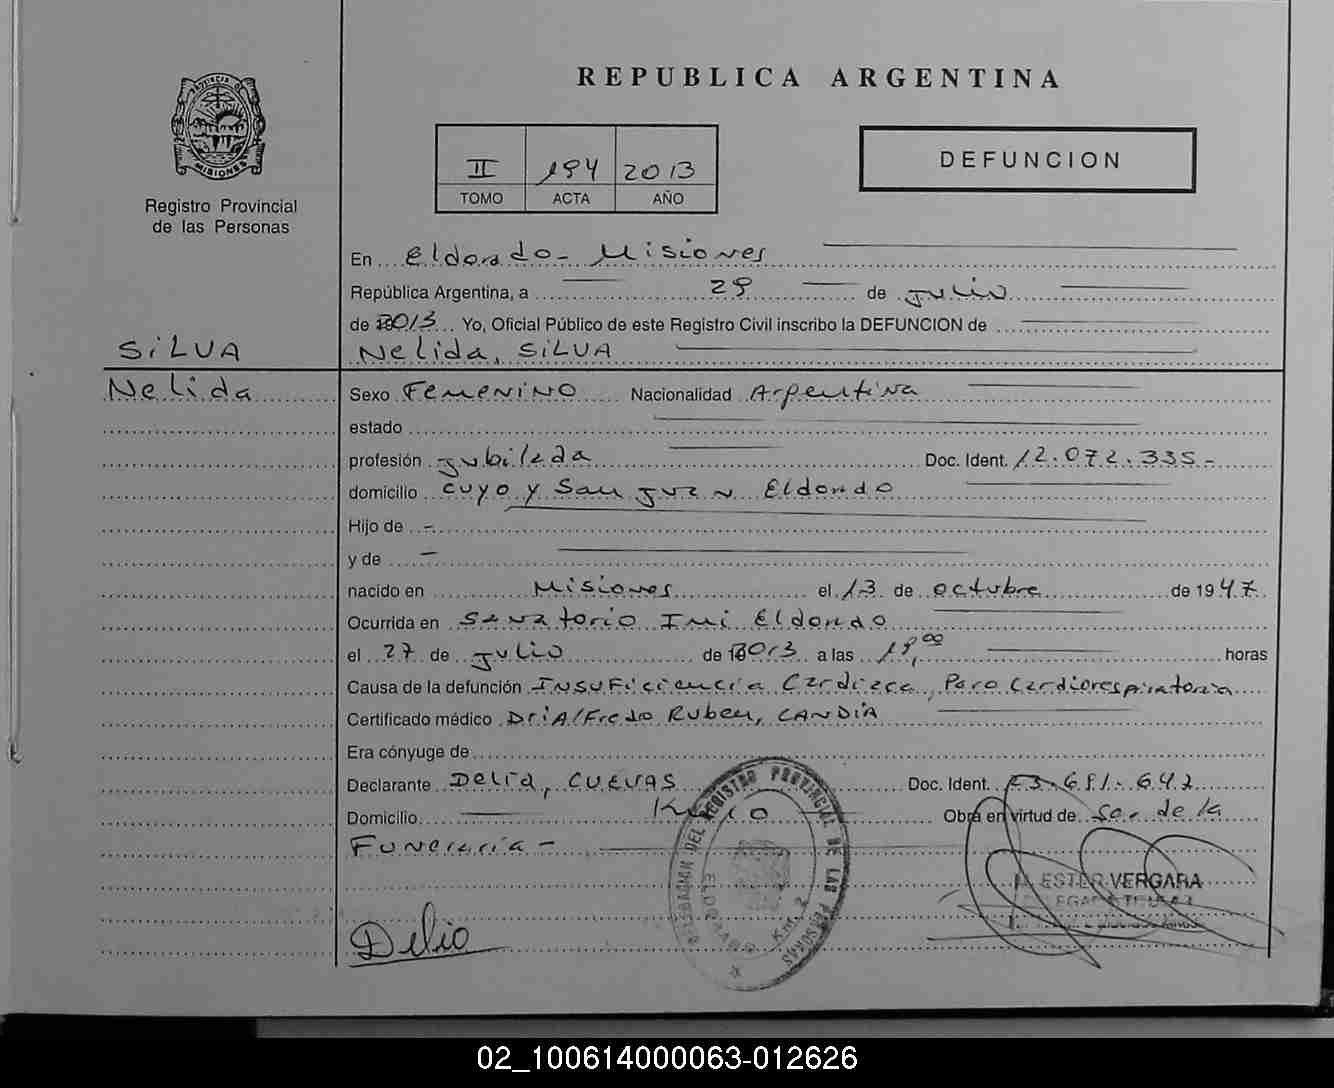 REPUBLICA ARGENTINA
PROVINCIA DE MISIONES
Registro Provincial
de las Personas
II 194 2013
TOMO ACTA AÑO
DEFUNCION
En Eldorado - Misiones
República Argentina, a 29 de Julio
de 2013 Yo, Oficial Público de este Registro Civil inscribo la DEFUNCION de
SILVA
Nelida, SILVA
Nelida
Sexo Femenino Nacionalidad Argentina
estado
profesión Jubilada Doc. Ident. 12.072.335-
domicilio Cuyo y San Juan Eldorado
Hijo de -
y de -
nacido en Misiones el 13 de octubre de 1947
Ocurrida en Sanatorio Imi Eldorado
el 27 de Julio de 2013 a las 19,00 horas
Causa de la defunción Insuficiencia Cardiaca, Paro Cardiorespiratoria
Certificado médico Dr: Alfredo Ruben, CANDIA
Era cónyuge de
Declarante Delio, CUEVAS Doc. Ident. 23.681.642
Domicilio Obra en virtud de Ser de la
Funeraria -
DELEGACION DEL REGISTRO PROVINCIAL DE LAS PERSONAS
ELDORADO Km. 2
ESTER VERGARA
Delio
02_100614000063-012626